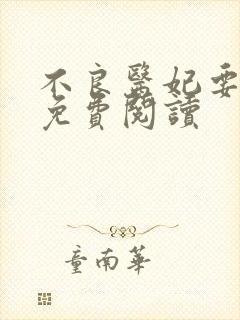 不良醫妃要
免費閱讀
童南華